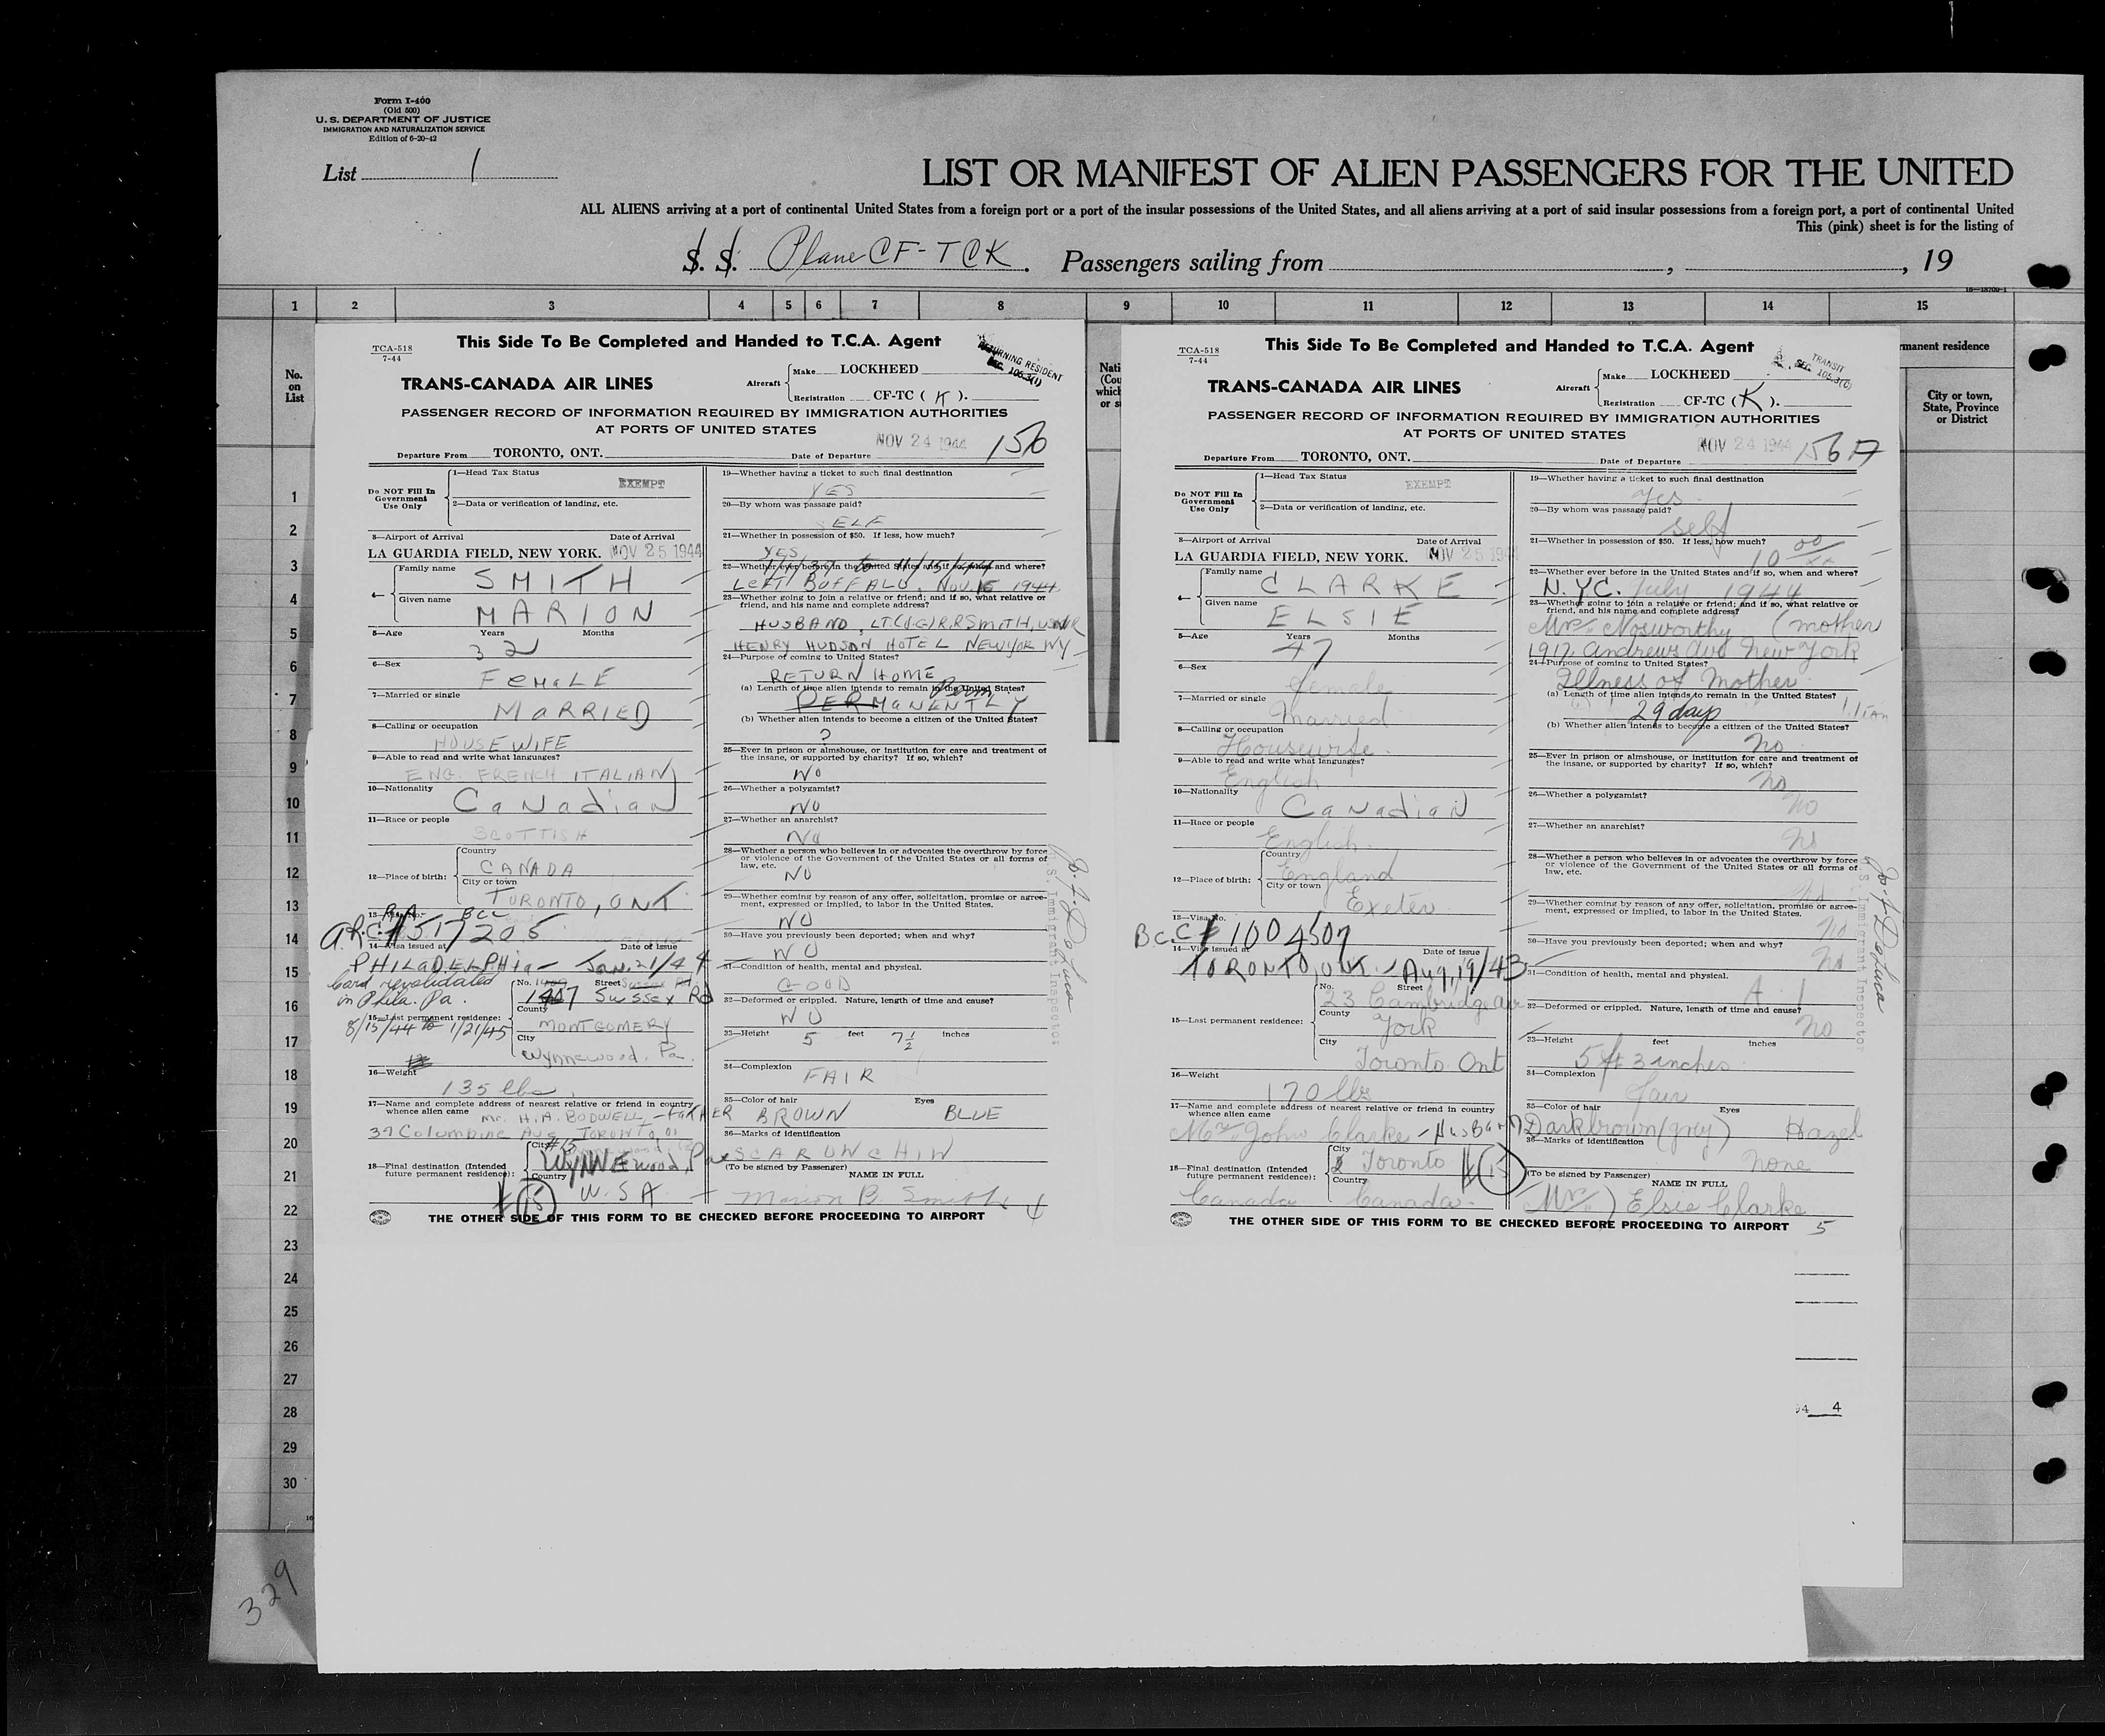 Form I-400
(Old 500)
U. S. DEPARTMENT OF JUSTICE
IMMIGRATION AND NATURALIZATION SERVICE
Edition of 6-20-42
List 1
LIST OR MANIFEST OF ALIEN PASSENGERS FOR THE UNITED
ALL ALIENS arriving at a port of continental United States from a foreign port or a port of the insular possessions of the United States, and all aliens arriving at a port of said insular possessions from a foreign port, a port of continental United
This (pink) sheet is for the listing of
S. S. Plane CF-TCK. Passengers sailing from , , 19
1 2 3 4 5 6 7 8 9 10 11 12 13 14 15
No.
on
List
This Side To Be Completed and Handed to T.C.A. Agent
TCA-518
7-44
RETURNING RESIDENT
SEC. 105.3(1)
TRANS-CANADA AIR LINES
Aircraft
Make LOCKHEED
Registration CF-TC ( K ).
PASSENGER RECORD OF INFORMATION REQUIRED BY IMMIGRATION AUTHORITIES
AT PORTS OF UNITED STATES
NOV 24 1944 156
Departure From TORONTO, ONT. Date of Departure
Do NOT Fill In
Government
Use Only
1—Head Tax Status
EXEMPT
2—Data or verification of landing, etc.
3—Airport of Arrival Date of Arrival
LA GUARDIA FIELD, NEW YORK. NOV 25 1944
4—
Family name
SMITH
Given name
MARION
5—Age Years Months
32
6—Sex
FEMALE
7—Married or single
MARRIED
8—Calling or occupation
HOUSEWIFE
9—Able to read and write what languages?
ENG. FRENCH ITALIAN
10—Nationality
Canadian
11—Race or people
SCOTTISH
12—Place of birth:
Country
CANADA
City or town
TORONTO, ONT
13—Visa No.
A.R.C. #517205
14—Visa issued at Date of issue
PHILADELPHIA - Jan. 21/44
Card revalidated
in Phila. Pa.
8/15/44 to 1/21/45
15—Last permanent residence:
No. Street
Sussex Rd
County
MONTGOMERY
City
Wynnewood, Pa.
16—Weight
135 lbs.
17—Name and complete address of nearest relative or friend in country
whence alien came Mr. H.A. BODWELL - FATHER
39 Columbine Ave TORONTO, Ont
18—Final destination (Intended
future permanent residence):
City #15
WYNNEwood, Pa
Country
U.S.A
15
19—Whether having a ticket to such final destination
YES
20—By whom was passage paid?
SELF
21—Whether in possession of $50. If less, how much?
YES
22—Whether ever before in the United States and if so, when and where?
LEFT BUFFALO, NOV. 15 1944
23—Whether going to join a relative or friend; and if so, what relative or
friend, and his name and complete address?
HUSBAND, LT.(J.G.) R.R SMITH, USNR
HENRY HUDSON HOTEL NEW YORK NY
24—Purpose of coming to United States?
RETURN HOME
(a) Length of time alien intends to remain in the United States?
Perm
PERMANENTLY
(b) Whether alien intends to become a citizen of the United States?
?
25—Ever in prison or almshouse, or institution for care and treatment of
the insane, or supported by charity? If so, which?
NO
26—Whether a polygamist?
NO
27—Whether an anarchist?
NO
28—Whether a person who believes in or advocates the overthrow by force
or violence of the Government of the United States or all forms of
law, etc.
NO
29—Whether coming by reason of any offer, solicitation, promise or agree-
ment, expressed or implied, to labor in the United States.
NO
30—Have you previously been deported; when and why?
NO
31—Condition of health, mental and physical.
GOOD
32—Deformed or crippled. Nature, length of time and cause?
NO
33—Height 5 feet 7½ inches
34—Complexion
FAIR
35—Color of hair Eyes
BROWN BLUE
36—Marks of identification
SCAR ON CHIN
(To be signed by Passenger) NAME IN FULL
Marion B. Smith
4
U.S. Immigrant Inspector
THE OTHER SIDE OF THIS FORM TO BE CHECKED BEFORE PROCEEDING TO AIRPORT
This Side To Be Completed and Handed to T.C.A. Agent
TCA-518
7-44
TRANSIT
SEC. 105.3(c)
TRANS-CANADA AIR LINES
Aircraft
Make LOCKHEED
Registration CF-TC ( K ).
PASSENGER RECORD OF INFORMATION REQUIRED BY IMMIGRATION AUTHORITIES
AT PORTS OF UNITED STATES
NOV 24 1944 156 A
Departure From TORONTO, ONT. Date of Departure
Do NOT Fill In
Government
Use Only
1—Head Tax Status
EXEMPT
2—Data or verification of landing, etc.
3—Airport of Arrival Date of Arrival
LA GUARDIA FIELD, NEW YORK. NOV 25 19
4—
Family name
CLARKE
Given name
ELSIE
5—Age Years Months
47
6—Sex
female
7—Married or single
Married
8—Calling or occupation
Housewife.
9—Able to read and write what languages?
English
10—Nationality
Canadian
11—Race or people
English.
12—Place of birth:
Country
England
City or town
Exeter
13—Visa No.
B.C.C # 1004507
14—Visa issued at Date of issue
TORONTO, ONT. - Aug. 19/43
15—Last permanent residence:
No. Street
23 Cambridge Ave
County
York
City
Toronto Ont
16—Weight
170 lbs
17—Name and complete address of nearest relative or friend in country
whence alien came
Mr. John Clarke - HUSBAND
18—Final destination (Intended
future permanent residence):
City
Toronto
Country
Canada Canada.
15
19—Whether having a ticket to such final destination
Yes
20—By whom was passage paid?
Self
21—Whether in possession of $50. If less, how much?
10 00/xx
22—Whether ever before in the United States and if so, when and where?
N.Y.C. July 1944
23—Whether going to join a relative or friend; and if so, what relative or
friend, and his name and complete address?
Mrs. Nosworthy (mother
1912 Andrews Ave New York
24—Purpose of coming to United States?
Illness of Mother.
(a) Length of time alien intends to remain in the United States?
29 days
(b) Whether alien intends to become a citizen of the United States?
no
25—Ever in prison or almshouse, or institution for care and treatment of
the insane, or supported by charity? If so, which?
no
26—Whether a polygamist?
no
27—Whether an anarchist?
no
28—Whether a person who believes in or advocates the overthrow by force
or violence of the Government of the United States or all forms of
law, etc.
no
29—Whether coming by reason of any offer, solicitation, promise or agree-
ment, expressed or implied, to labor in the United States.
no
30—Have you previously been deported; when and why?
no
31—Condition of health, mental and physical.
A.1
32—Deformed or crippled. Nature, length of time and cause?
no
33—Height feet inches
5 ft 3 inches
34—Complexion
fair
35—Color of hair Eyes
Dark brown (grey) Hazel
36—Marks of identification
none
(To be signed by Passenger) NAME IN FULL
(Mrs.) Elsie Clarke
U.S. Immigrant Inspector
THE OTHER SIDE OF THIS FORM TO BE CHECKED BEFORE PROCEEDING TO AIRPORT 5
manent residence
City or town,
State, Province
or District
1
2
3
4
5
6
7
8
9
10
11
12
13
14
15
16
17
18
19
20
21
22
23
24
25
26
27
28
29
30
94 4
329